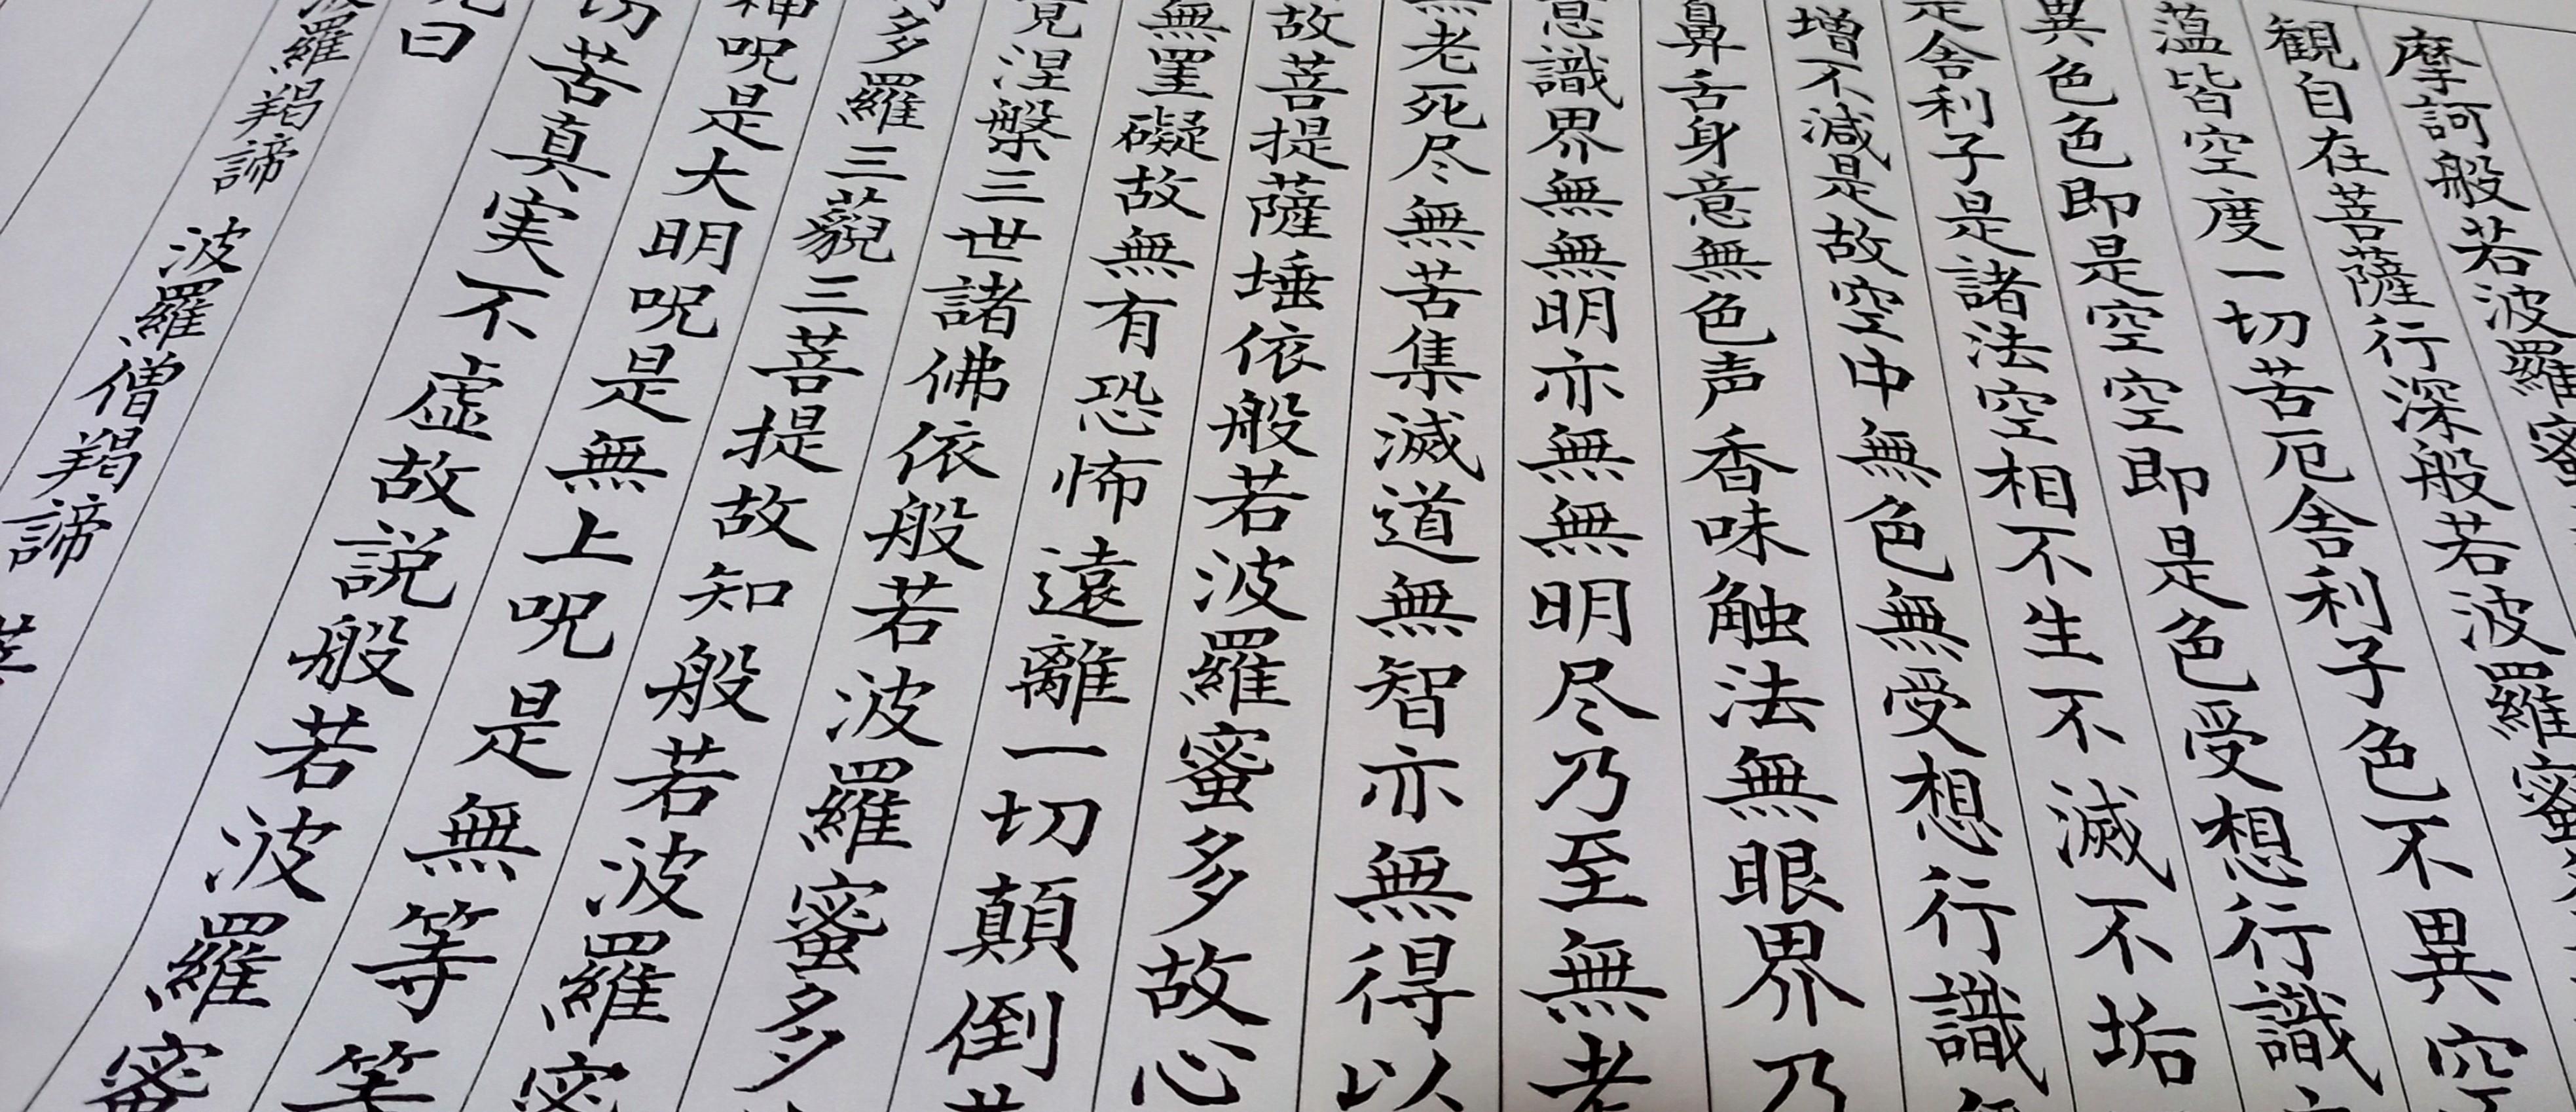 摩訶般若波羅蜜
観自在菩薩行深般若波羅蜜
蘊皆空度一切苦厄舎利子色不異空
異色色即是空空即是色受想行識
是舎利子是諸法空相不生不滅不垢
増不減是故空中無色無受想行識
鼻舌身意無色声香味触法無眼界乃
意識界無無明亦無無明尽乃至無老
無老死尽無苦集滅道無智亦無得以
故菩提薩埵依般若波羅蜜多故心
無罣礙故無有恐怖遠離一切顛倒
覚涅槃三世諸佛依般若波羅蜜多
多羅三藐三菩提故知般若波羅蜜
神呪是大明呪是無上呪是無等等
切苦真実不虚故説般若波羅蜜
呪曰
波羅羯諦 波羅僧羯諦 菩